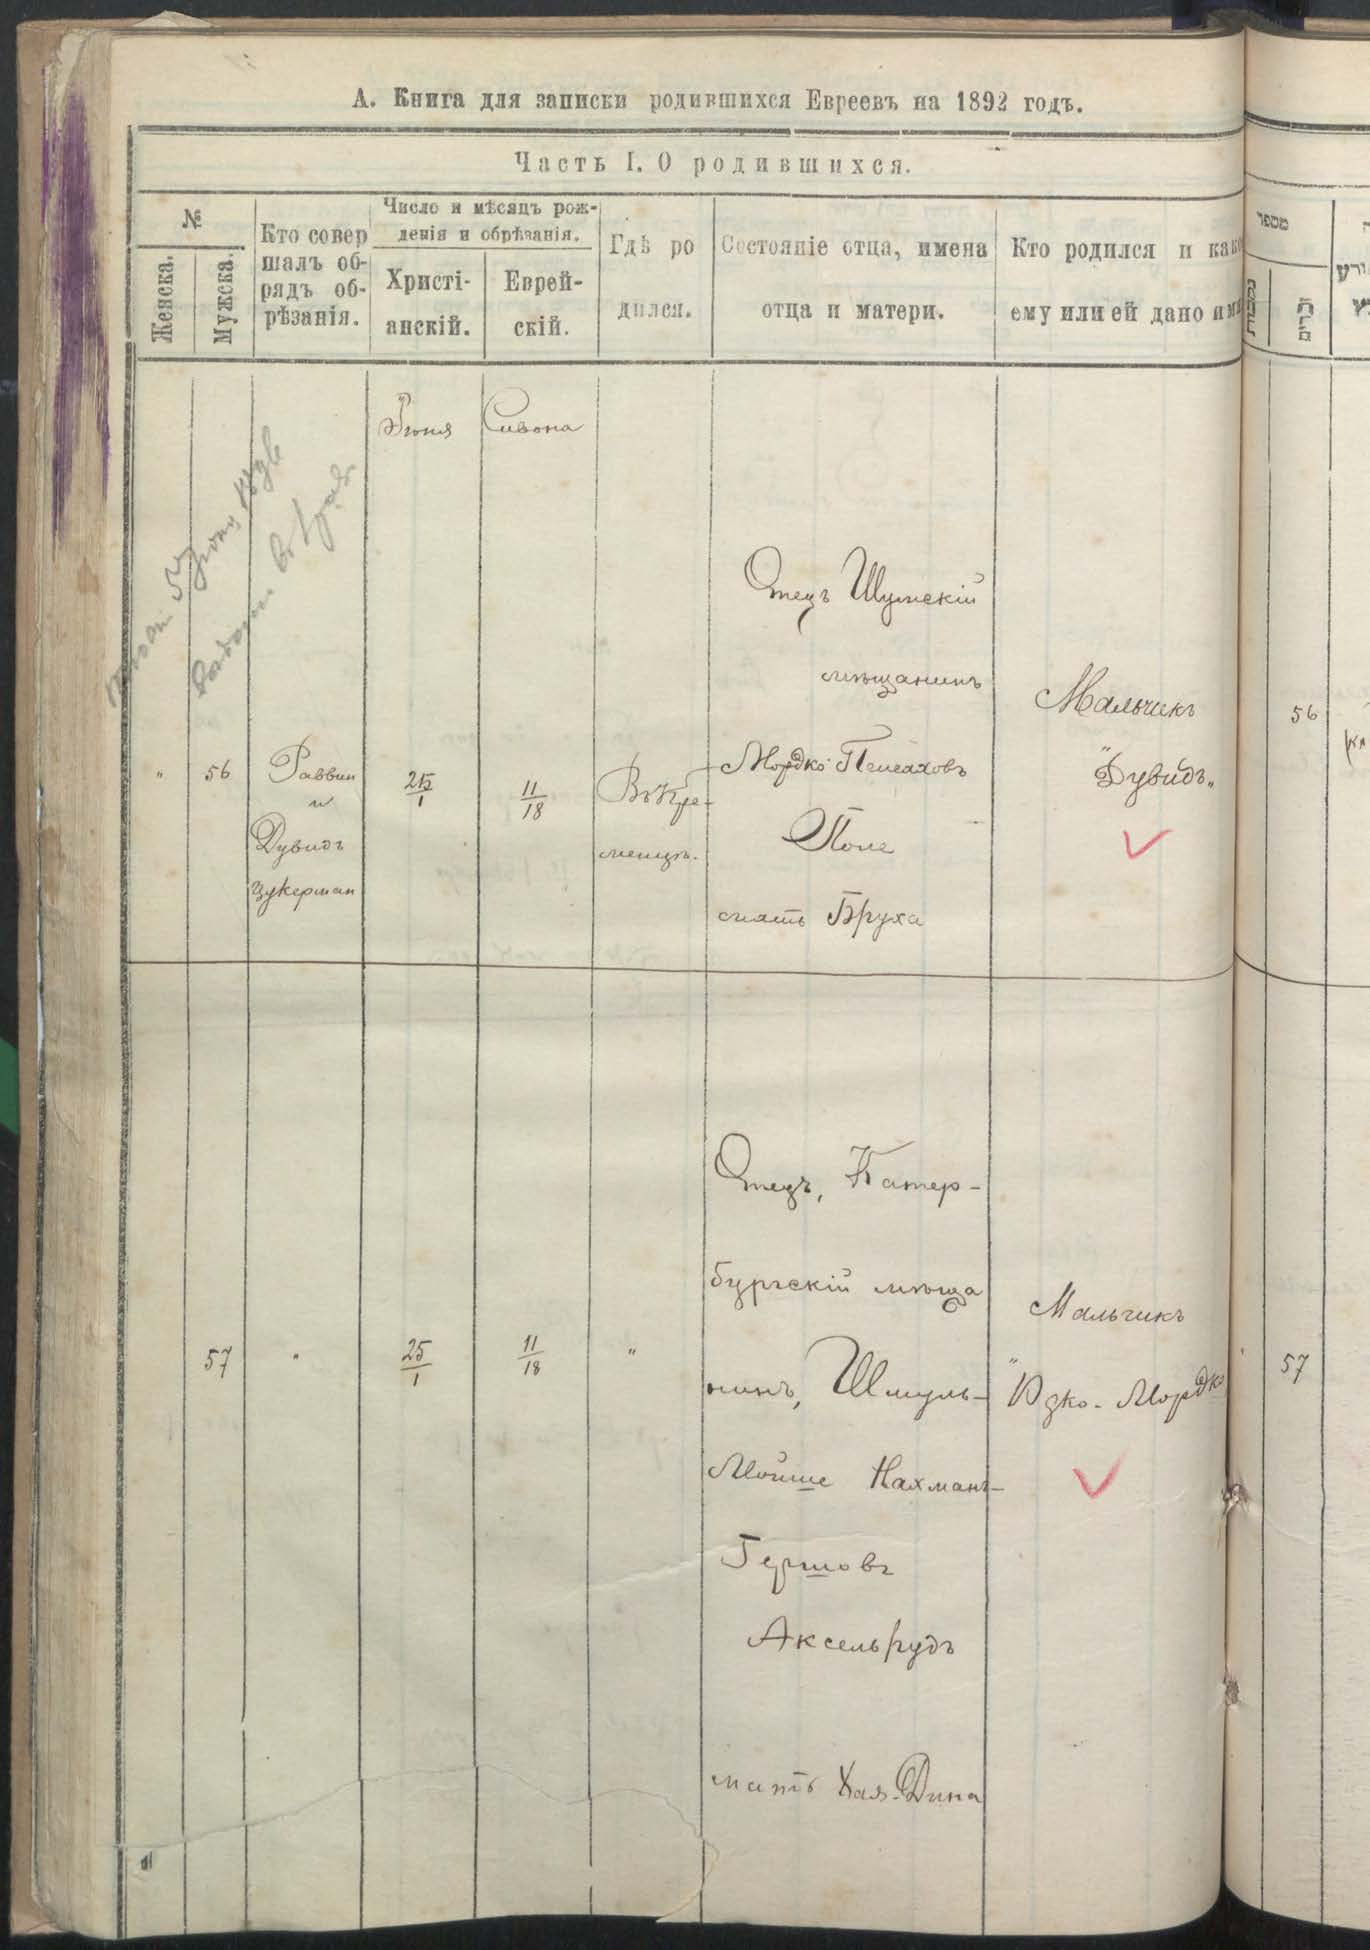 А. Книга для записки родившихся Евреевъ на 1892 годъ.
Часть I. О родившихся.
№
Женска.
Мужска.
Кто совер
шалъ об-
рядъ об-
рѣзанія.
Число и мѣсяцъ рож-
денія и обрѣзанія.
Христі-
анскій.
Еврей-
скій.
Гдѣ ро
дился.
Состояніе отца, имена
отца и матери.
Кто родился и како
ему или ей дано имя
מספר
נקבות
זכרים
Іюня
Сивона
"
56
Раввин
и
Дувидъ
Цукерман
25
1
11
18
Въ Кре-
менцѣ.
Отецъ Шумскій
мѣщанинъ
Мордко Пейсаховъ
мать Бруха
Мальчикъ
"Дувидъ"
56
57
"
25
1
11
18
"
Отецъ, Катер-
бургскій мѣща
нинъ, Шмуль-
Мойше Нахманъ-
Гершовъ
Аксельрудъ
мать Хая-Дина
Мальчикъ
"Ицко-Мордко
57